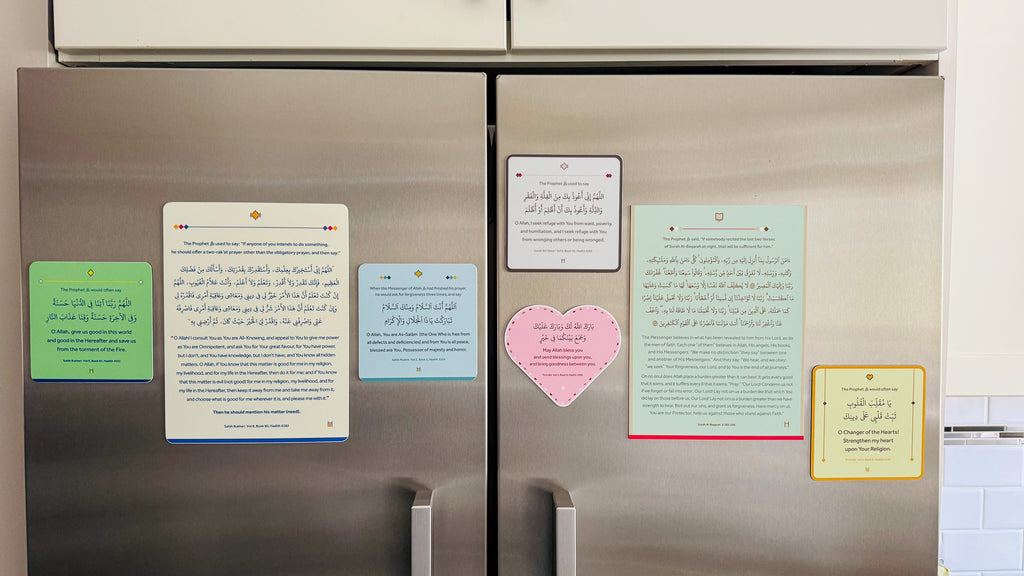 The Prophet ﷺ would often say
اللَّهُمَّ رَبَّنَا آتِنَا فِي الدُّنْيَا حَسَنَةً
وَفِي الْآخِرَةِ حَسَنَةً وَقِنَا عَذَابَ النَّارِ
O Allah, give us good in this world
and good in the Hereafter and save us
from the torment of the Fire.
The Prophet ﷺ used to say: "If anyone of you intends to do something,
he should offer a two-rak'at prayer other than the obligatory prayer, and then say:"
اللَّهُمَّ إِنِّي أَسْتَخِيرُكَ بِعِلْمِكَ، وَأَسْتَقْدِرُكَ بِقُدْرَتِكَ، وَأَسْأَلُكَ مِنْ فَضْلِكَ
الْعَظِيمِ، فَإِنَّكَ تَقْدِرُ وَلَا أَقْدِرُ، وَتَعْلَمُ وَلَا أَعْلَمُ، وَأَنْتَ عَلَّامُ الْغُيُوبِ، اللَّهُمَّ
إِنْ كُنْتَ تَعْلَمُ أَنَّ هَذَا الْأَمْرَ خَيْرٌ لِي فِي دِينِي وَمَعَاشِي وَعَاقِبَةِ أَمْرِي فَاقْدُرْهُ لِي
وَإِنْ كُنْتَ تَعْلَمُ أَنَّ هَذَا الْأَمْرَ شَرٌّ لِي فِي دِينِي وَمَعَاشِي وَعَاقِبَةِ أَمْرِي فَاصْرِفْهُ
عَنِّي وَاصْرِفْنِي عَنْهُ، وَاقْدُرْ لِيَ الْخَيْرَ حَيْثُ كَانَ، ثُمَّ أَرْضِنِي بِهِ
"O Allah! I consult You as You are All-Knowing, and appeal to You to give me power
as You are Omnipotent, and ask You for Your great favour, for You have power,
but I don't, and You have knowledge, but I don't have, and You know all hidden
matters. O Allah, if You know that this matter is good for me in my religion,
my livelihood, and for my life in the Hereafter, then do it for me; and if You know
that this matter is evil (not good) for me in my religion, my livelihood, and for
my life in the Hereafter, then keep it away from me and take me away from it,
and choose what is good for me wherever it is, and please me with it."
Then he should mention his matter (need).
Sahih Bukhari
When the Messenger of Allah ﷺ had finished his prayer,
he would ask for forgiveness three times, and say
اللَّهُمَّ أَنْتَ السَّلَامُ وَمِنْكَ السَّلَامُ
تَبَارَكْتَ يَا ذَا الْجَلَالِ وَالْإِكْرَامِ
O Allah, You are As-Salām (the One Who is free from
all defects and deficiencies) and from You is all peace,
blessed are You, Possessor of majesty and honor.
The Prophet ﷺ used to say
اللَّهُمَّ إِنِّي أَعُوذُ بِكَ مِنَ الْقِلَّةِ وَالْفَقْرِ
وَالذِّلَّةِ وَأَعُوذُ بِكَ أَنْ أَظْلِمَ أَوْ أُظْلَمَ
O Allah, I seek refuge with You from want, poverty,
and humiliation, and I seek refuge with You
from wronging others or being wronged.
بَارَكَ اللَّهُ لَكَ وَبَارَكَ عَلَيْكَ
وَجَمَعَ بَيْنَكُمَا فِي خَيْرٍ
May Allah bless you
and send blessings upon you,
and bring goodness between you.
The Prophet ﷺ said, "If somebody recited the last two Verses
of Surah Al-Baqarah at night, that will be sufficient for him."
ءَامَنَ الرَّسُولُ بِمَا أُنْزِلَ إِلَيْهِ مِنْ رَبِّهِ وَالْمُؤْمِنُونَ كُلٌّ ءَامَنَ بِاللَّهِ وَمَلَائِكَتِهِ
وَكُتُبِهِ وَرُسُلِهِ لَا نُفَرِّقُ بَيْنَ أَحَدٍ مِنْ رُسُلِهِ وَقَالُوا سَمِعْنَا وَأَطَعْنَا غُفْرَانَكَ
The Messenger believes in what has been revealed to him from his Lord, as do
the men of faith. Each one "of them" believes in Allah, His angels, His books,
and His Messengers. "We make no distinction" (they say) "between one
and another of His Messengers." And they say: "We hear, and we obey:
"we seek" Your forgiveness, our Lord, and to You is the end of all journeys."
On no soul does Allah place a burden greater than it can bear. It gets every good
that it earns, and it suffers every ill that it earns. "Pray:" "Our Lord! Condemn us not
if we forget or fall into error; our Lord! Lay not on us a burden like that which You
did lay on those before us; Our Lord! Lay not on us a burden greater than we have
strength to bear. Blot out our sins, and grant us forgiveness. Have mercy on us.
You are our Protector; help us against those who stand against Faith."
The Prophet ﷺ would often say
يَا مُقَلِّبَ الْقُلُوبِ
ثَبِّتْ قَلْبِي عَلَى دِينِكَ
O Changer of the Hearts!
Strengthen my heart
upon Your Religion.